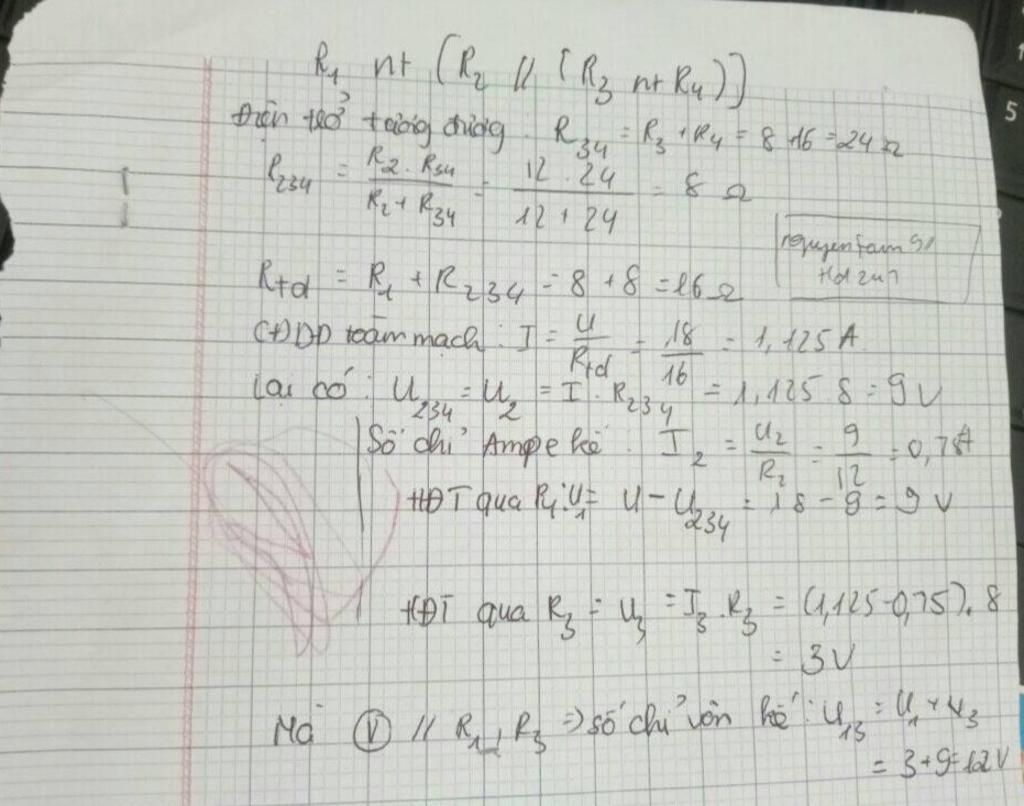 R₁ nt (R₂ // (R₃ nt R₄)]
Điện trở tương đương: R₃₄ = R₃ + R₄ = 8 16 = 24 Ω
R₂₃₄ = R₂ . R₃₄ / R₂ + R₃₄ = 12 . 24 / 12 + 24 = 8 Ω
nguyentam
Rtd = R₁ + R₂₃₄ = 8 + 8 = 16 Ω
CĐDĐ toàn mạch: I = U / Rtd = 18 / 16 = 1,125 A
Lại có: U₂₃₄ = U₂ = I . R₂₃₄ = 1,125 . 8 = 9 V
Số chỉ Ampe kế: I₂ = U₂ / R₂ = 9 / 12 = 0,75A
HĐT qua R₁: U₁ = U - U₂₃₄ = 18 - 9 = 9 V
HĐT qua R₃ = U₃ = I₃ . R₃ = (1,125-0,75). 8
= 3V
Mà Ⓥ // R₁, R₃ => số chỉ vôn kế: U₁₃ = U₁ + U₃
= 3+9=12V
5